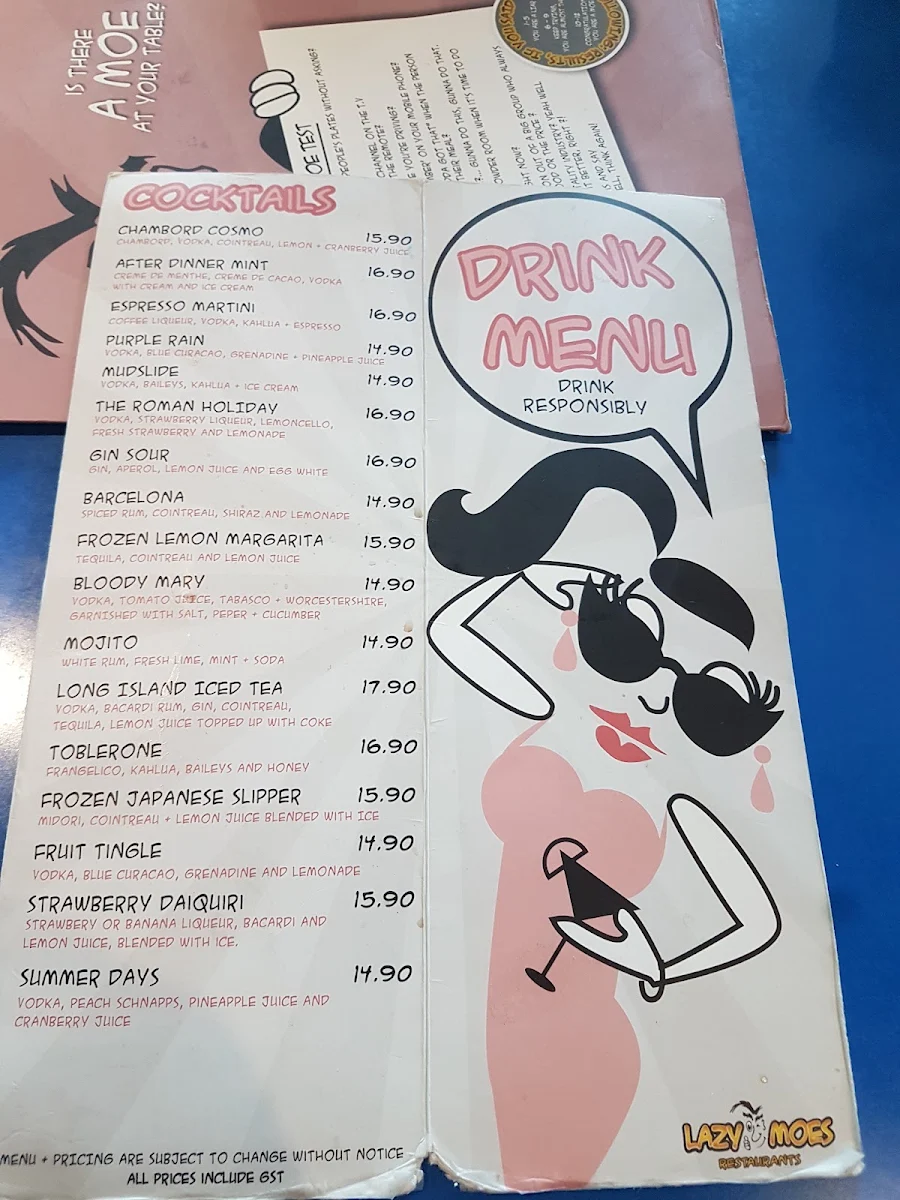 IS THERE
A MOE
AT YOUR TABLE?
OE TEST
PEOPLE'S PLATES WITHOUT ASKING?
CHANNEL ON THE T.V
THE REMOTE?
E YOU'RE DRIVING?
E ON YOUR MOBILE PHONE?
WHEN THE PERSON
GOT THAT"
THEIR MEAL?
GUNNA DO THIS, GUNNA DO THAT,
WHEN IT'S TIME TO DO
OWDER ROOM WHEN IT'S TIME TO DO
HT NOW?
OF A BIG GROUP WHO ALWAYS
ON OUT OF THE PRICE?
OOD OR INDUSTRY?!
TALITY BETTER, RIGHT?!
IT AND SAY
ELL, THINK AGAIN!
COCKTAILS
CHAMBORD COSMO 15.90
CHAMBORD, VODKA, COINTREAU, LEMON + CRANBERRY JUICE
AFTER DINNER MINT 16.90
CREME DE MENTHE, CREME DE CACAO, VODKA
WITH CREAM AND ICE CREAM
ESPRESSO MARTINI 16.90
COFFEE LIQUEUR, VODKA, KAHLUA + ESPRESSO
PURPLE RAIN 14.90
VODKA, BLUE CURACAO, GRENADINE + PINEAPPLE JUICE
MUDSLIDE 14.90
VODKA, BAILEYS, KAHLUA + ICE CREAM
THE ROMAN HOLIDAY 16.90
VODKA, STRAWBERRY LIQUEUR, LEMONCELLO,
FRESH STRAWBERRY AND LEMONADE
GIN SOUR 16.90
GIN, APEROL, LEMON JUICE AND EGG WHITE
BARCELONA 14.90
SPICED RUM, COINTREAU, SHIRAZ AND LEMONADE
FROZEN LEMON MARGARITA 15.90
TEQUILA, COINTREAU AND LEMON JUICE
BLOODY MARY 14.90
VODKA, TOMATO JUICE, TABASCO + WORCESTERSHIRE,
GARNISHED WITH SALT, PEPER + CUCUMBER
MOJITO 14.90
WHITE RUM, FRESH LIME, MINT + SODA
LONG ISLAND ICED TEA 17.90
VODKA, BACARDI RUM, GIN, COINTREAU,
TEQUILA, LEMON JUICE TOPPED UP WITH COKE
TOBLERONE 16.90
FRANGELICO, KAHLUA, BAILEYS AND HONEY
FROZEN JAPANESE SLIPPER 15.90
MIDORI, COINTREAU + LEMON JUICE BLENDED WITH ICE
FRUIT TINGLE 14.90
VODKA, BLUE CURACAO, GRENADINE AND LEMONADE
STRAWBERRY DAIQUIRI 15.90
STRAWBERY OR BANANA LIQUEUR, BACARDI AND
LEMON JUICE, BLENDED WITH ICE.
SUMMER DAYS 14.90
VODKA, PEACH SCHNAPPS, PINEAPPLE JUICE AND
CRANBERRY JUICE
MENU + PRICING ARE SUBJECT TO CHANGE WITHOUT NOTICE
ALL PRICES INCLUDE GST
DRINK
MENU
DRINK
RESPONSIBLY
LAZY MOES
RESTAURANTS